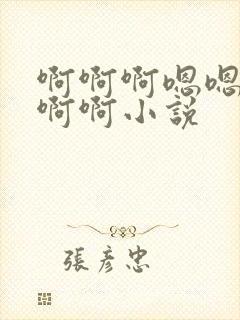 啊啊啊嗯嗯
啊啊小説
張彥忠